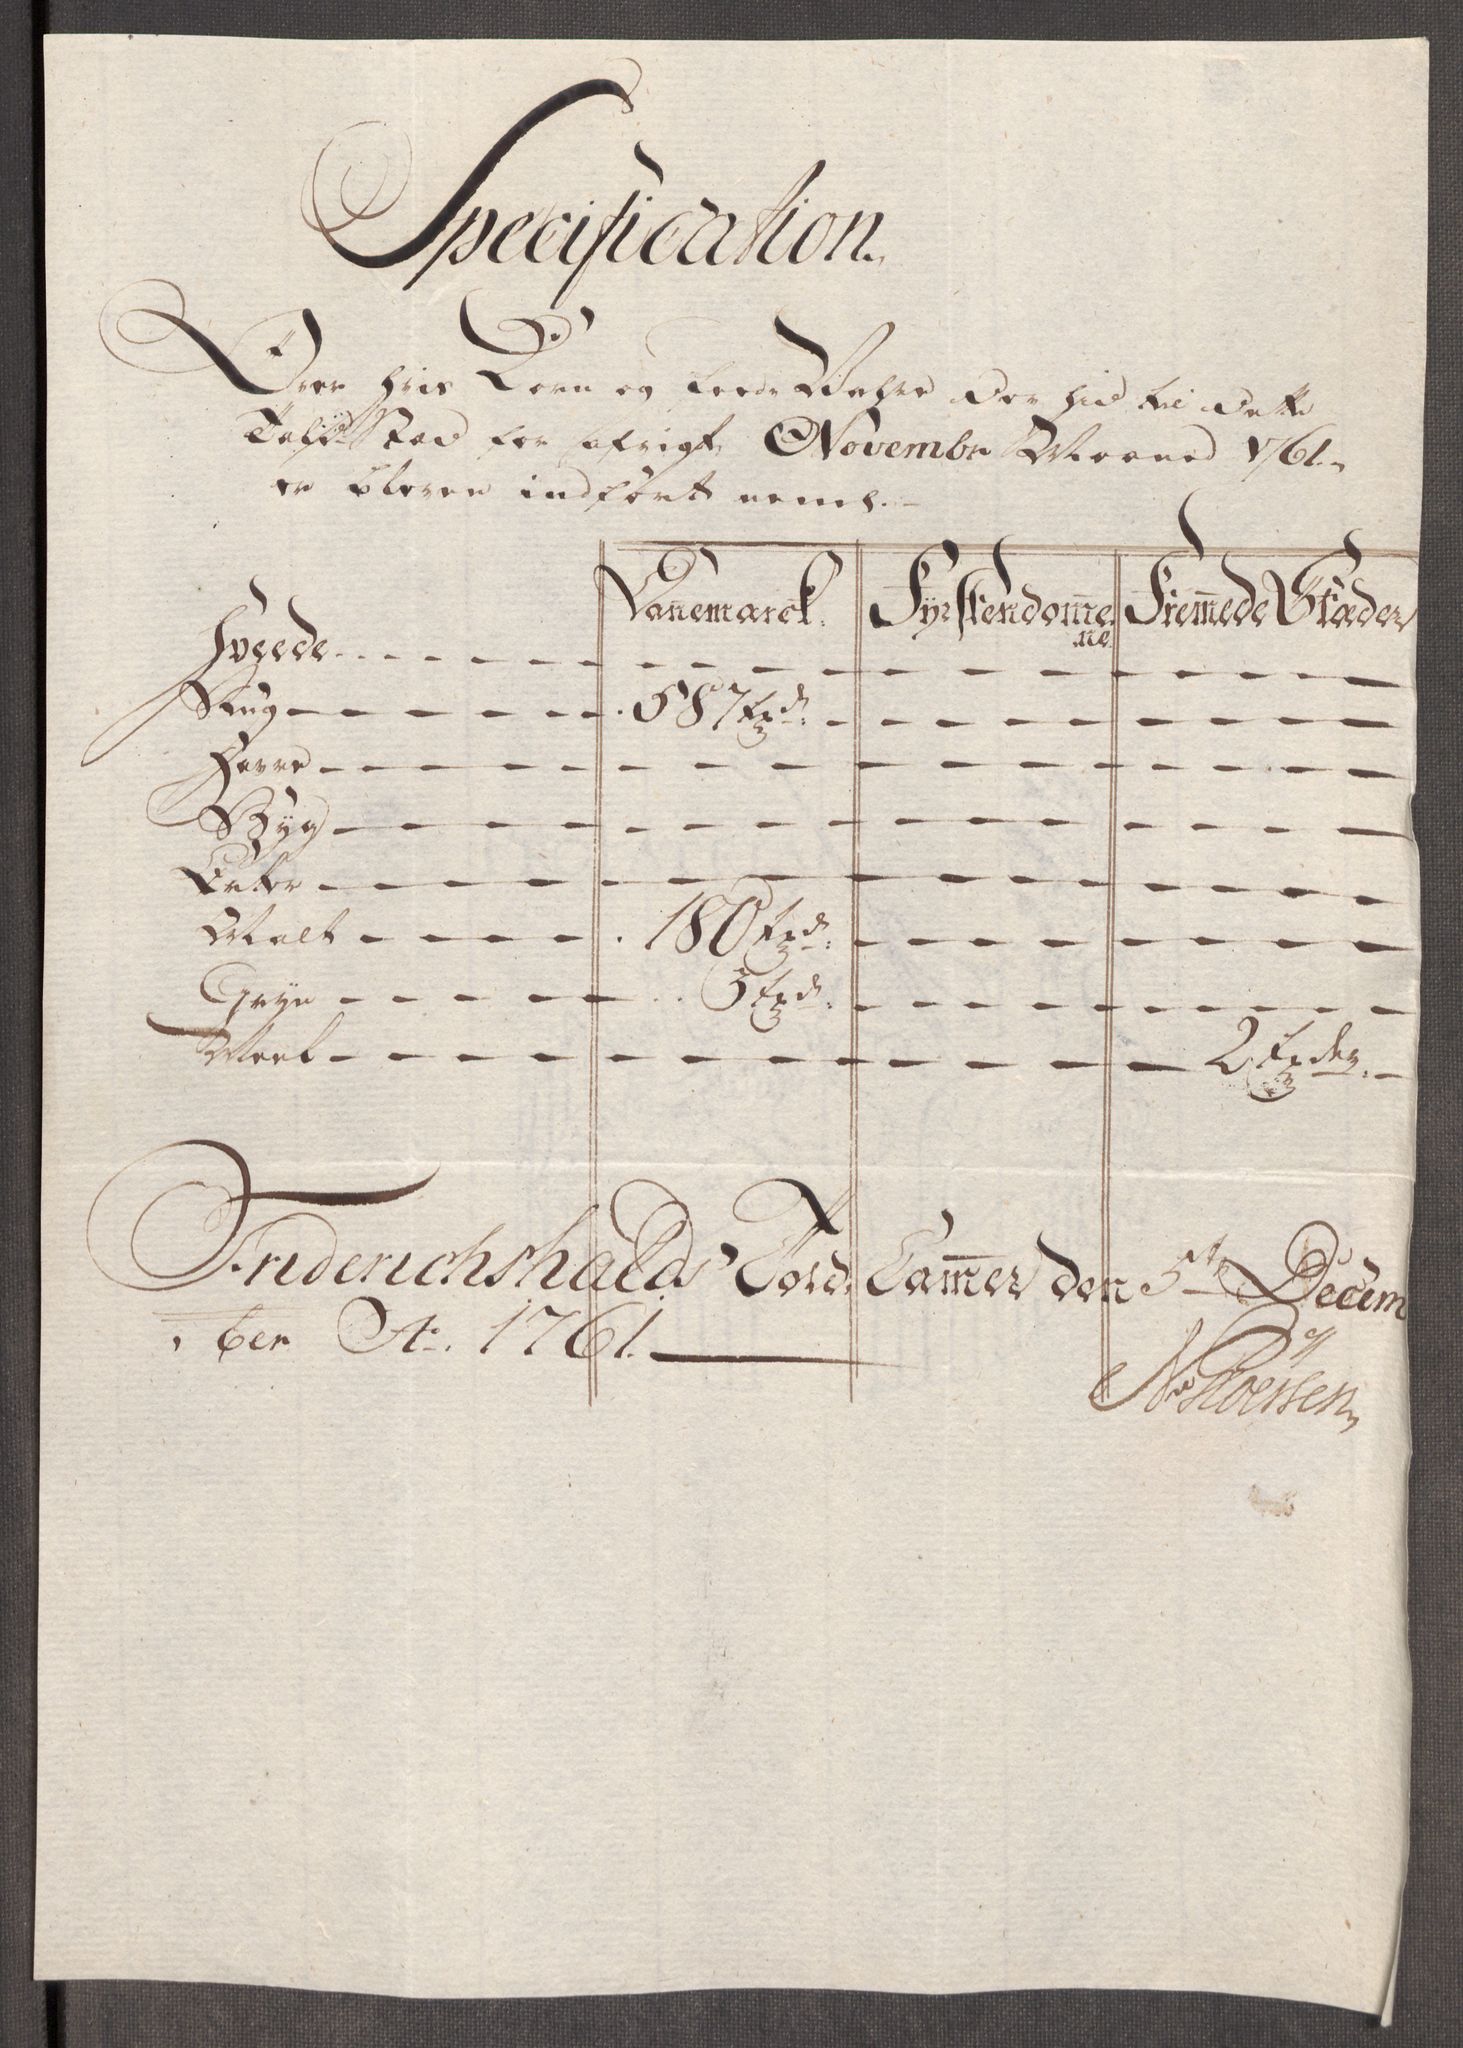 Specification
Over hvis Korn og feede Vahre der hid til dette
Told Sted for afvigt November Maaned 1761.
er bleven indført neml.
Danemarck. Fyrstendomme Fremmede Stæder
ne.
Hvede
Rug 587 Tdr.
Havre
Byg
Erter
Malt 180 Tdr.
Gryn 3 Tdr.
Meel 2 Tdr.
Friderichshalds Told Cammer den 5te Decem
ber Ao. 1761.